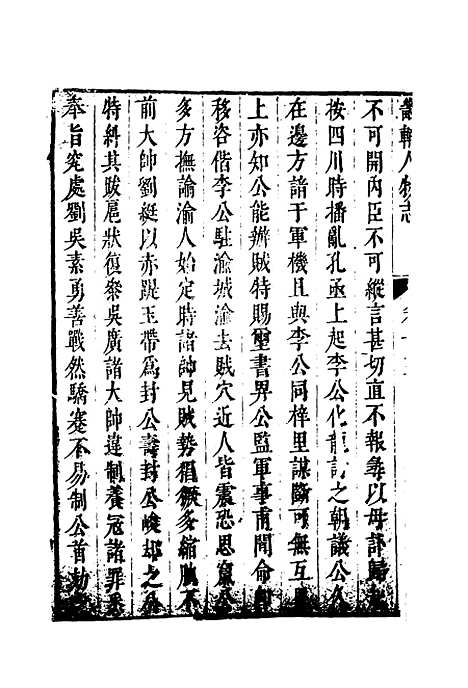 畿輔人物志 卷十五
不可開內臣不可縱言甚切直不報尋以母訃歸
按四川時播亂孔亟上起李公化龍討之朝議公久
在邊方諳于軍機且與李公同梓里謀斷可無互
上亦知公能辦賊特賜璽書畀公監軍事甫聞命即
移咨偕李公駐渝城渝去賊穴近人皆震恐思竄公
多方撫諭渝人始定時諸帥見賊勢猖獗多縮朒不
前大帥劉綎以赤蹄玉帶為封公壽封公峻却之公
特糾其跋扈狀復叅吳廣諸大帥違制養寇諸罪悉
奉旨究處劉吳素勇善戰然驕蹇不易制公首劾